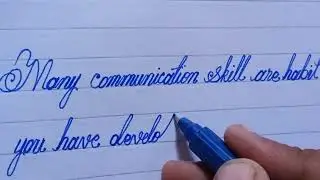 Many communication skill are habit
you have develo